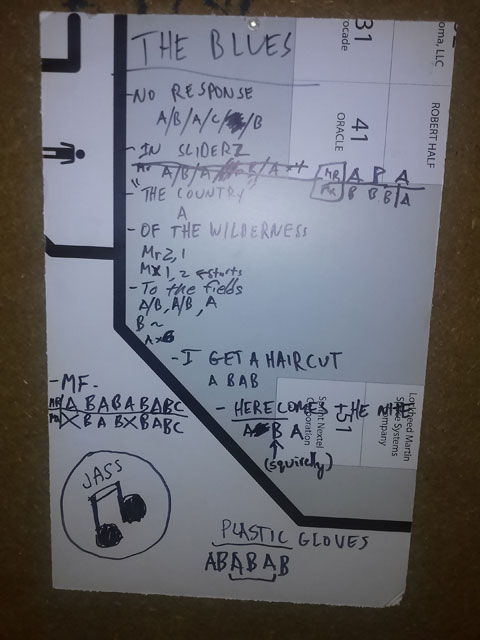 THE BLUES
31
ocade
oma, LLC
- NO RESPONSE
A/B/A/C/ /B
41
ORACLE
ROBERT HALF
- IN SLIDERZ
A/B/A/ B/A
MR A B A
B B B A
- "THE COUNTRY"
A
- OF THE WILDERNESS
Mr 2, 1
MX 1, 2 starts
- To the fields
A/B, A/B, A
B ~
- I GET A HAIRCUT
A BAB
- MF -
MR A BABABABC
X B A B X B A B C
- HERE COME THE
A B A
(squirelly)
+51
Sprint Nextel
Corporation
Lockheed Martin
Space Systems
Company
JASS
PLASTIC GLOVES
ABABAB